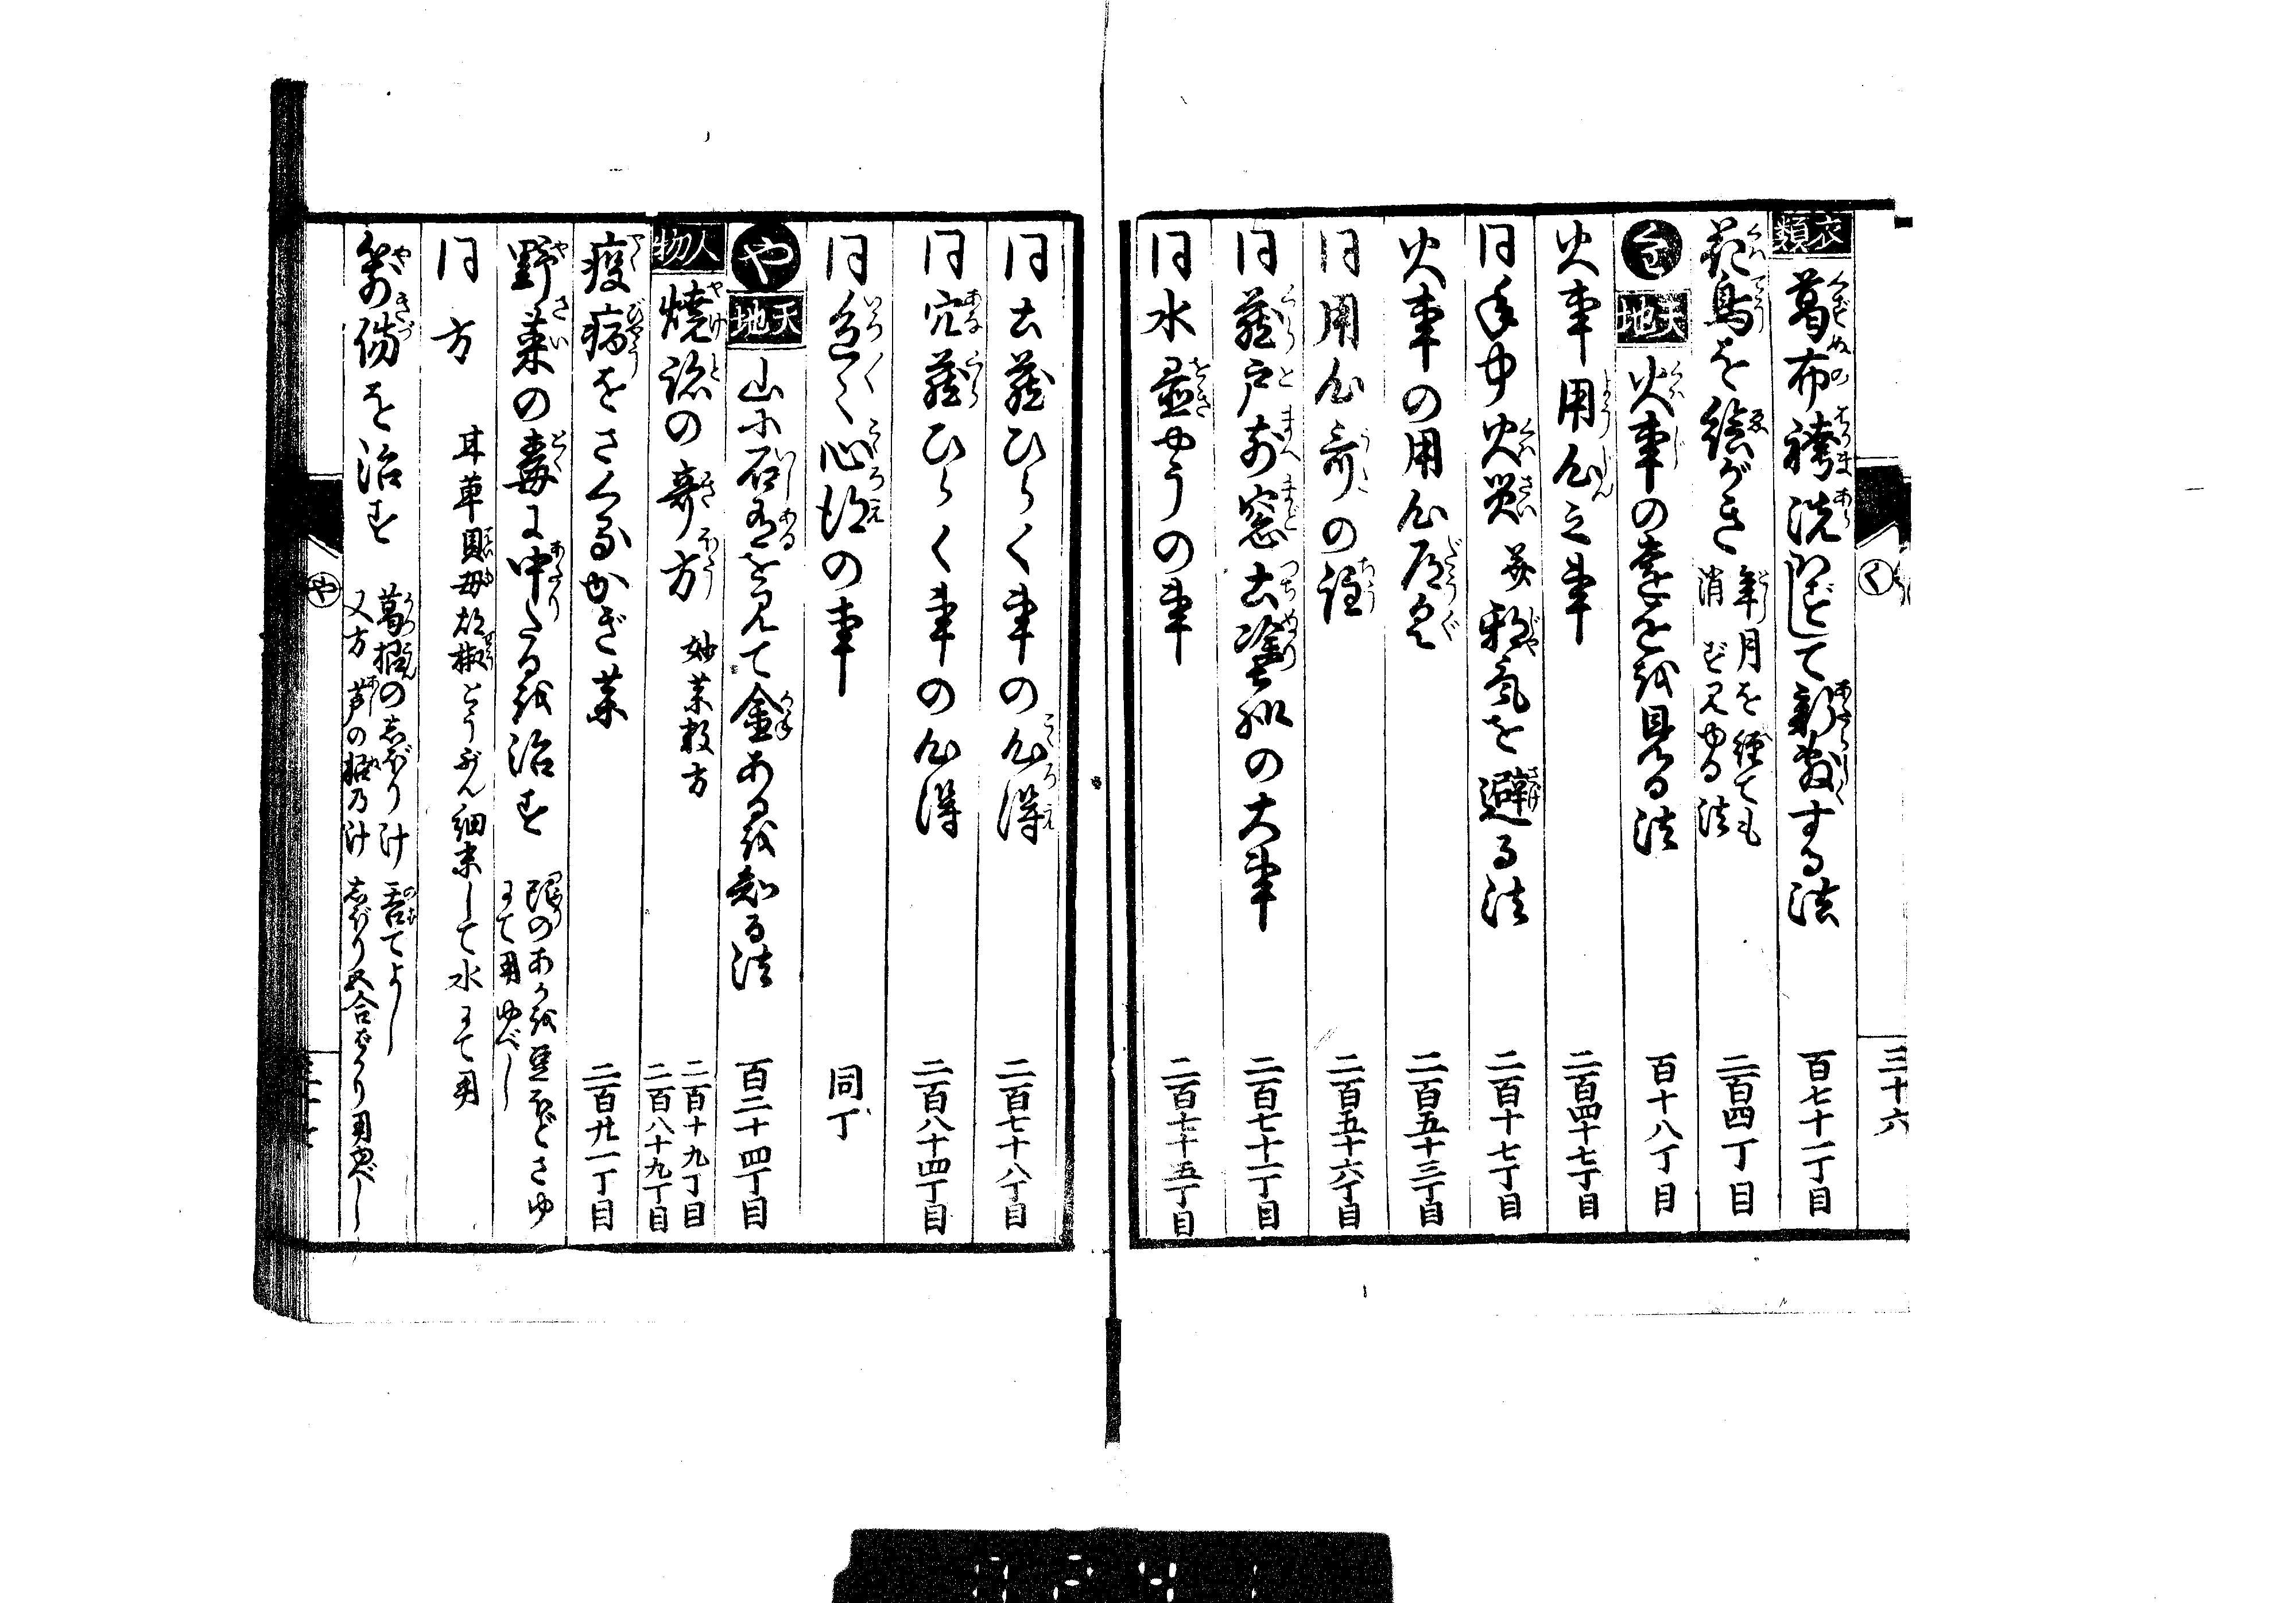 三十六
く
衣類 葛布袴洗わずして新敷する法 百七十一丁目
花鳥を絵がき 年月を経ても消ず見ゆる法 二百四丁目
天地 火事の遠近を見る法 百十八丁目
火事用心之事 二百四十七丁目
同手中火災并邪気を避る法 二百十七丁目
火事の用心道具 二百五十三丁目
同用心哥の證 二百五十六丁目
同蔵戸前窓土塗様の大事 二百七十一丁目
同水置やうの事 二百七十五丁目
同土蔵ひらく事の心得 二百七十八丁目
同穴蔵ひらく事の心得 二百八十四丁目
同色〻心得の事 同丁
や 天地 山に石有を見て金ある越知る法 百二十四丁目
人物 焼詫の奇方 妙薬数方 二百十九丁目 二百八十九丁目
疫病をさくるかぎ薬 二百廿一丁目
野菜の毒に中たる越治す
にて用ゆべし
同方 甘草貝母胡椒とうぶん細末して水にて用
箭傷を治す 葛根のしぼり汁 呑てよし
又方 芦の根乃汁 しぼり
や